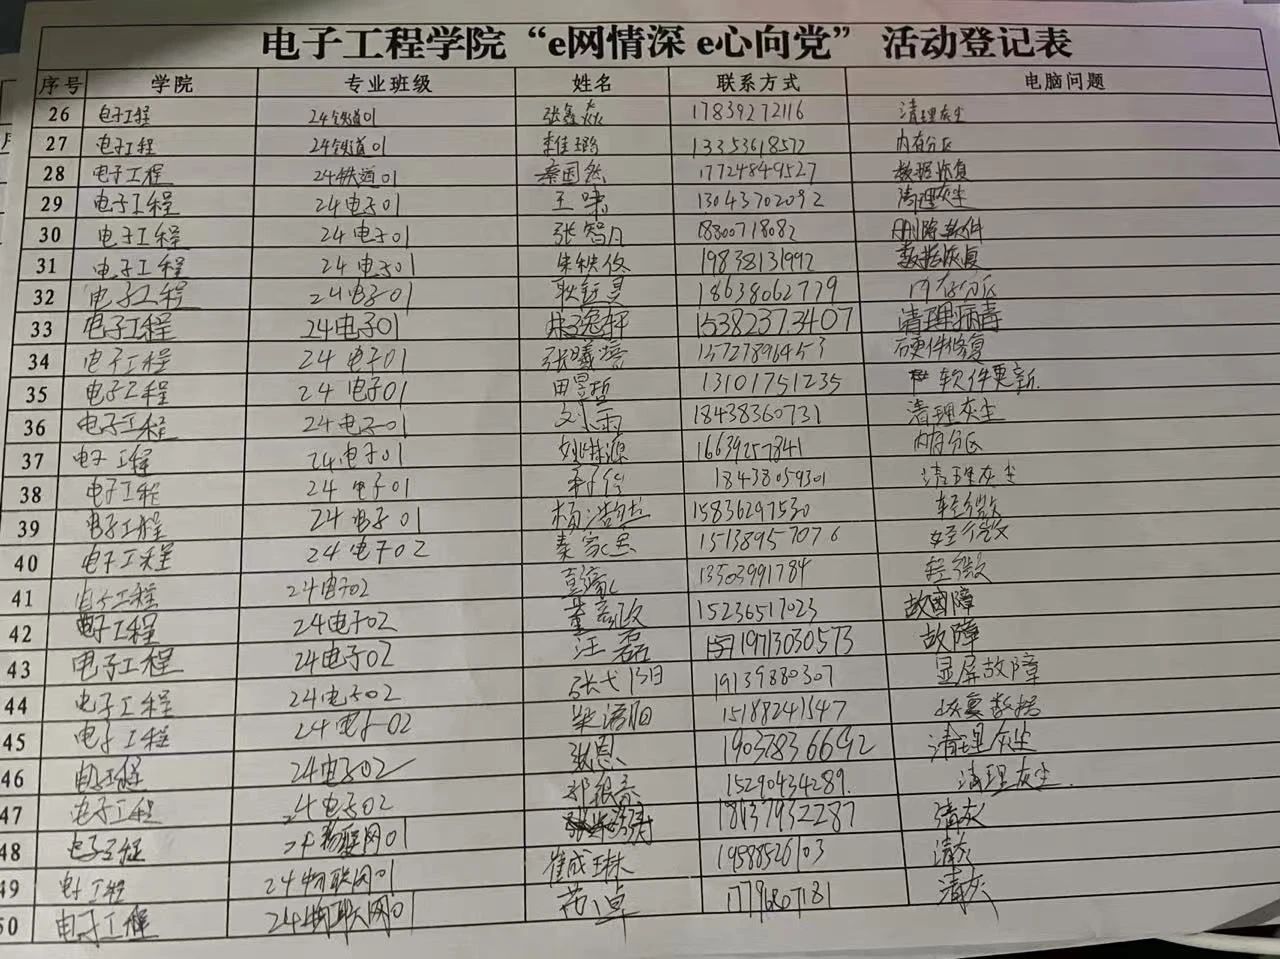 电子工程学院“e网情深 e心向党” 活动登记表
序号 学院 专业班级 姓名 联系方式 电脑问题
26 电子工程 24铁道01 张鑫焱 17839272116 清理灰尘
27 电子工程 24铁道01 李佳璐 13353618572 内存分区
28 电子工程 24铁道01 秦国然 17724849527 数据恢复
29 电子工程 24电子01 王啸 13043702092 清理灰尘
30 电子工程 24电子01 张智月 18800718082 删除软件
31 电子工程 24电子01 19838131992 数据恢复
32 电子工程 24电子01 18638062779 内存分区
33 电子工程 24电子01 15382373407 清理病毒
34 电子工程 24电子01 张曦培 15727896453 硬件修复
35 电子工程 24电子01 田昱哲 13101751235 软件更新
36 电子工程 24电子01 刘雨 18438360731 清理灰尘
37 电子工程 24电子01 16639257841 内存分区
38 电子工程 24电子01 18438059301 清理灰尘
39 电子工程 24电子01 杨浩然 15836297530 轻微
40 电子工程 24电子02 秦家思 15138957076 轻微
41 电子工程 24电子02 13503991784 轻微
42 电子工程 24电子02 15236517023 故障
43 电子工程 24电子02 汪磊 19713030573 故障
44 电子工程 24电子02 张弋阳 19139880307 显屏故障
45 电子工程 24电子02 15188241547 恢复数据
46 电子工程 24电子02 张恩 19037836692 清理灰尘
47 电子工程 24电子02 15290434289. 清理灰尘.
48 电子工程 24物联网01 18437932287 清灰
49 电子工程 24物联网01 崔成琳 19588526103 清灰
50 电子工程 24物联网01 17796807181 清灰